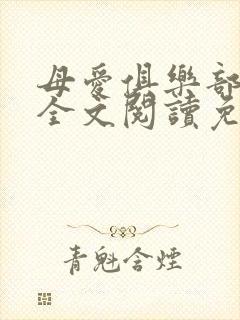 母愛俱樂部
全文閱讀免
青魁含煙